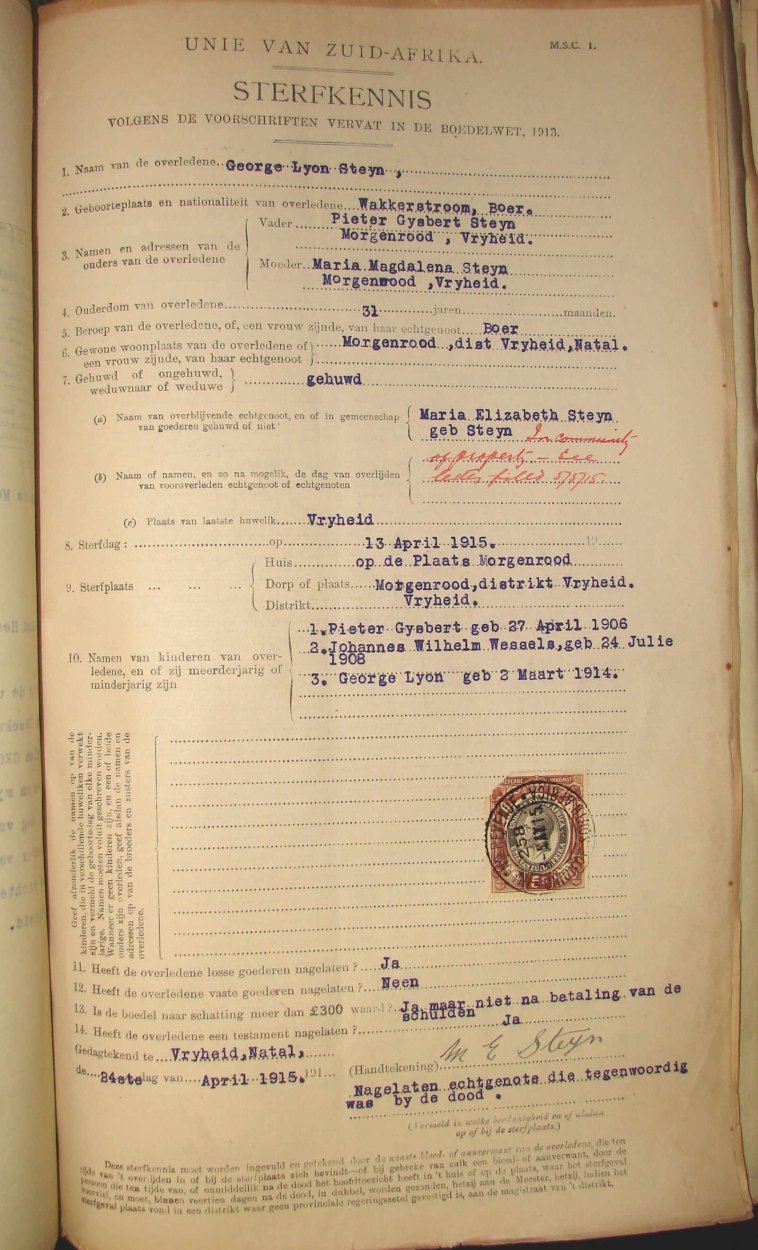 UNIE VAN ZUID-AFRIKA.
M.S.C. 1.
STERFKENNIS
VOLGENS DE VOORSCHRIFTEN VERVAT IN DE BOEDELWET, 1913.
1. Naam van de overledene George Lyon Steyn,
2. Geboorteplaats en nationaliteit van overledene Wakkerstroom, Boer.
3. Namen en adressen van de ouders van de overledene
Vader Pieter Gysbert Steyn
Morgenrood, Vryheid.
Moeder Maria Magdalena Steyn
Morgenrood ,Vryheid.
4. Ouderdom van overledene 31 jaren maanden.
5. Beroep van de overledene, of, een vrouw zijnde, van haar echtgenoot Boer
6. Gewone woonplaats van de overledene of een vrouw zijnde, van haar echtgenoot Morgenrood ,dist Vryheid,Natal.
7. Gehuwd of ongehuwd, weduwnaar of weduwe gehuwd
(a) Naam van overblijvende echtgenoot, en of in gemeenschap van goederen gehuwd of niet
Maria Elizabeth Steyn
geb Steyn In community
of property - See
letter filed 5/5/15.
(b) Naam of namen, en zo na mogelik, de dag van overlijden van vooroverleden echtgenoot of echtgenoten
(c) Plaats van laatste huwelik Vryheid
8. Sterfdag: op 13 April 1915. 19
9. Sterfplaats ... ... ...
Huis op de Plaats Morgenrood
Dorp of plaats Morgenrood,distrikt Vryheid.
Distrikt Vryheid.
10. Namen van kinderen van overledene, en of zij meerderjarig of minderjarig zijn
1.Pieter Gysbert geb 27 April 1906
2.Johannes Wilhelm Wessels,geb 24 Julie
1908
3. George Lyon geb 2 Maart 1914.
Geef afzonderlik de namen op van de
kinderen, die in verschillende huweliken verwekt
zijn en vermeld de geboortedag van elke minder-
jarige. Namen moeten voluit geschreven worden.
Wanneer er geen kinderen zijn, en een of beide
ouders zijn overleden, geef alsdan de namen en
adressen op van de broeders en zusters van de
overledene.
5s
11. Heeft de overledene losse goederen nagelaten ? Ja
12. Heeft de overledene vaste goederen nagelaten ? Neen
13. Is de boedel naar schatting meer dan £300 waard ? Ja maar niet na betaling van de
schulden
14. Heeft de overledene een testament nagelaten ? Ja
Gedagtekend te Vryheid,Natal,
(Handtekening) M E Steyn
de 24ste dag van April 1915. 191
Nagelaten echtgenote die tegenwoordig
was by de dood .
(Vermeld in welke hoedanigheid en of alsdan
op of bij de sterfplaats.)
Deze sterfkennis moet worden ingevuld en getekend door de naaste bloed- of aanverwant van de overledene, die ten
tijde van 't overlijden in of bij de sterfplaats zich bevindt—of bij gebreke van zulk een bloed- of aanverwant, door de
persoon die ten tijde van, of onmiddellik na de dood het hoofdtoezicht heeft in 't huis of op de plaats, waar het sterfgeval
voorviel, en moet, binnen veertien dagen na de dood, in dubbel, worden gezonden, hetzij aan de Meester, hetzij, indien het
sterfgeval plaats vond in een distrikt waar geen provinciale regeringszetel gevestigd is, aan de magistraat van 't distrikt.